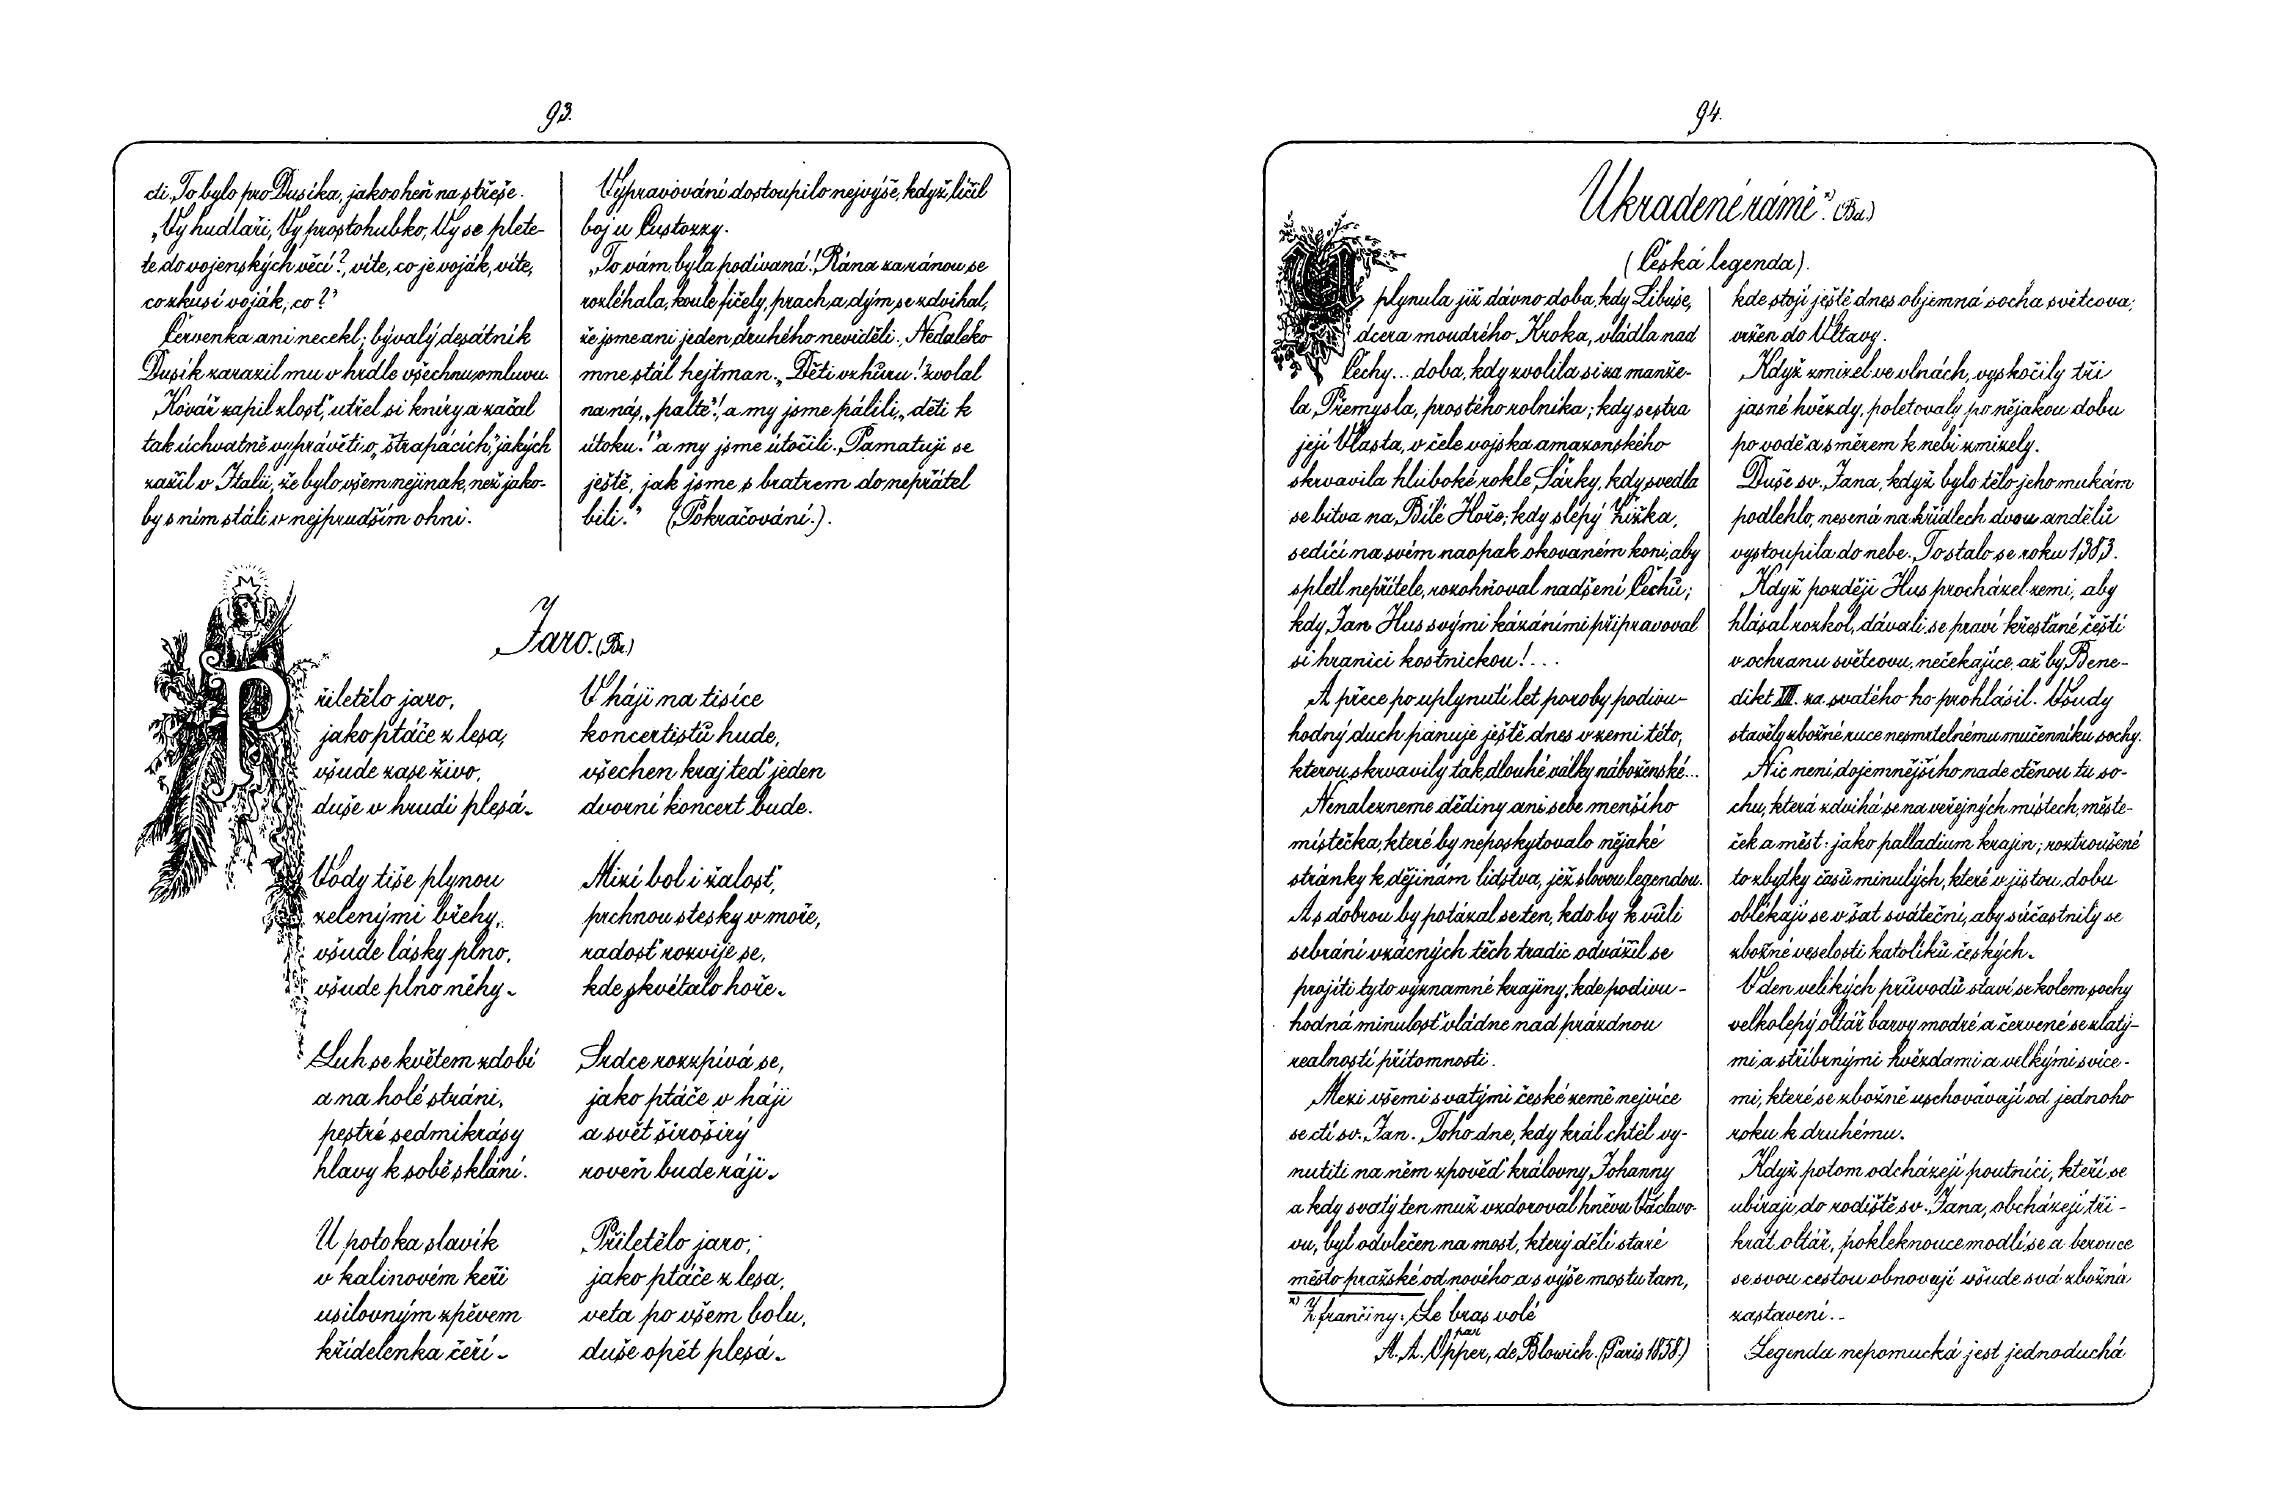 93.
cti. To bylo pro Dusíka, jako oheň na střeše.
„Vy hudlaři, Vy prostohubko, Vy se plete-
te do vojenských věcí?, víte, co je voják, víte,
co zkusí voják, co?"
Červenka ani necekl; bývalý desátník
Dusík zarazil mu v hrdle všechnu omluvu.
Kovář zapil zlosť, utřel si kníry a začal
tak úchvatně vyprávěti o „štrapácích", jakých
zažil v Italii, že bylo všem nejinak, než jako-
by s ním stáli v nejprudším ohni.
Vypravování dostoupilo nejvýše, když líčil
boj u Custozzy.
„To vám byla podívaná! Rána za ránou se
rozléhala, koule fičely, prach a dým se zdvihal,
že jsme ani jeden druhého neviděli. Nedaleko
mne stál hejtman. „Děti vzhůru!" zvolal
na nás, „palte"! a my jsme pálili, „děti k
útoku!" a my jsme útočili. Pamatuji se
ještě, jak jsme s bratrem do nepřátel
bili." (Pokračování.).
Jaro. (Br.)
Přiletělo jaro,
jako ptáče z lesa,
všude zase živo,
duše v hrudi plesá.
Vody tiše plynou
zelenými břehy,
všude lásky plno,
všude plno něhy.
Luh se květem zdobí
a na holé stráni,
pestré sedmikrásy
hlavy k sobě sklání.
U potoka slavík
v kalinovém keři
usilovným zpěvem
křídelenka čeří.
V háji na tisíce
koncertistů hude,
všechen kraj teď jeden
dvorní koncert bude.
Mizí bol i žalosť,
prchnou stesky v moře,
radosť rozvije se,
kde zkvétalo hoře.
Srdce rozzpívá se,
jako ptáče v háji
a svět široširý
roveň bude ráji.
Přiletělo jaro,
jako ptáče z lesa,
veta po všem bolu,
duše opět plesá.
94.
Ukradené rámě x). (Bd.)
(Česká legenda).
Uplynula již dávno doba, kdy Libuše,
dcera moudrého Kroka, vládla nad
Čechy... doba, kdy zvolila si za manže-
la Přemysla, prostého rolníka; kdy sestra
její Vlasta, v čele vojska amazonského
skrvavila hluboké rokle Šárky, kdy svedla
se bitva na Bílé Hoře; kdy slepý Žižka,
sedící na svém naopak okovaném koni, aby
spletl nepřítele, rozohňoval nadšení Čechů;
kdy Jan Hus svými kázáními připravoval
si hranici kostnickou!...
A přece po uplynutí let poroby podivu-
hodný duch panuje ještě dnes v zemi této,
kterou skrvavily tak dlouhé války náboženské...
Nenalezneme dědiny ani sebe menšího
místečka, které by neposkytovalo nějaké
stránky k dějinám lidstva, jež slovou legendou.
A s dobrou by potázal se ten, kdo by k vůli
sebrání vzácných těch tradic odvážil se
projíti tyto významné krajiny, kde podivu-
hodná minulosť vládne nad prázdnou
realností přítomnosti.
Mezi všemi svatými české země nejvíce
se ctí sv. Jan. Toho dne, kdy král chtěl vy-
nutiti na něm zpověď královny Johanny
a kdy svatý ten muž vzdoroval hněvu Václavo-
vu, byl odvlečen na most, který dělí staré
město pražské od nového a s výše mostu tam,
x) Z frančiny: Le bras volé
par
A. A. Opper, de Blowich. (Paris 1858.)
kde stojí ještě dnes objemná socha světcova,
vržen do Vltavy.
Když zmizel ve vlnách, vyskočily tři
jasné hvězdy, poletovaly po nějakou dobu
po vodě a směrem k nebi zmizely.
Duše sv. Jana, když bylo tělo jeho mukám
podlehlo, nesená na křídlech dvou andělů
vystoupila do nebe. To stalo se roku 1383.
Když později Hus procházel zemi, aby
hlásal rozkol, dávali se praví křesťané čeští
v ochranu světcovu, nečekajíce, až by Bene-
dikt XIII. za svatého ho prohlásil. Všudy
stavěly zbožné ruce nesmrtelnému mučenníku sochy.
Nic není dojemnějšího nade ctěnou tu so-
chu, která zdvihá se na veřejných místech, měste-
ček a měst jako palladium krajin; roztroušené
to zbytky časů minulých, které v jistou dobu
oblékají se v šat sváteční, aby súčastnily se
zbožné veselosti katolíků českých.
V den velikých průvodů staví se kolem sochy
velkolepý oltář barvy modré a červené se zlatý-
mi a stříbrnými hvězdami a velkými svíce-
mi, které se zbožně uschovávají od jednoho
roku k druhému.
Když potom odcházejí poutníci, kteří se
ubírají do rodiště sv. Jana, obcházejí tři-
krát oltář, pokleknouce modlí se a berouce
se svou cestou obnovují všude svá zbožná
zastavení..
Legenda nepomucká jest jednoduchá